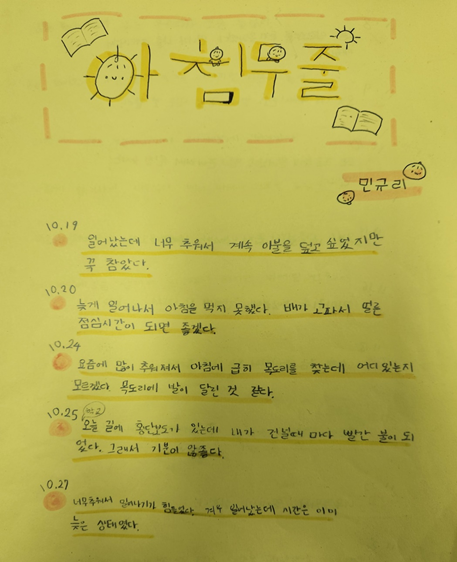 아침무줄
민규리
10.19
일어났는데 너무 추워서 계속 이불을 덮고 싶었지만
꾹 참았다.
10.20
늦게 일어나서 아침을 먹지 못했다. 배가 고파서 얼른
점심시간이 되면 좋겠다.
10.24
요즘에 많이 추워져서 아침에 급히 목도리를 찾는데 어디있는지
모르겠다 목도리에 발이 달린 것 같다.
10.25
오늘 길에 횡단보도가 있는데 내가 건널때 마다 빨간 불이 되
었다. 그래서 기분이 안좋다.
10.27
너무추워서 일어나기가 힘들었다. 겨우 일어났는데 시간은 이미
늦은 상태였다.